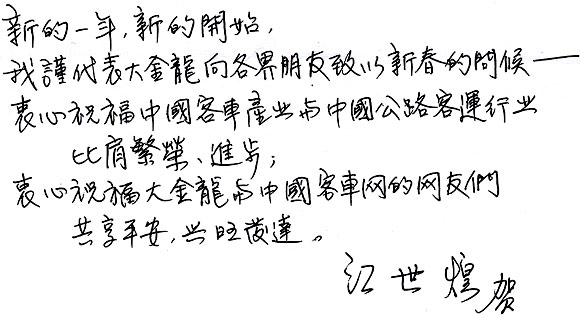 新的一年,新的開始,
我謹代表大金龍向各界朋友致以新春的問候——
衷心祝福中國客車產业与中國公路客運行业
比肩繁榮、進步;
衷心祝福大金龍与中國客車网的网友們
共享平安,兴旺發達。
江世煌贺